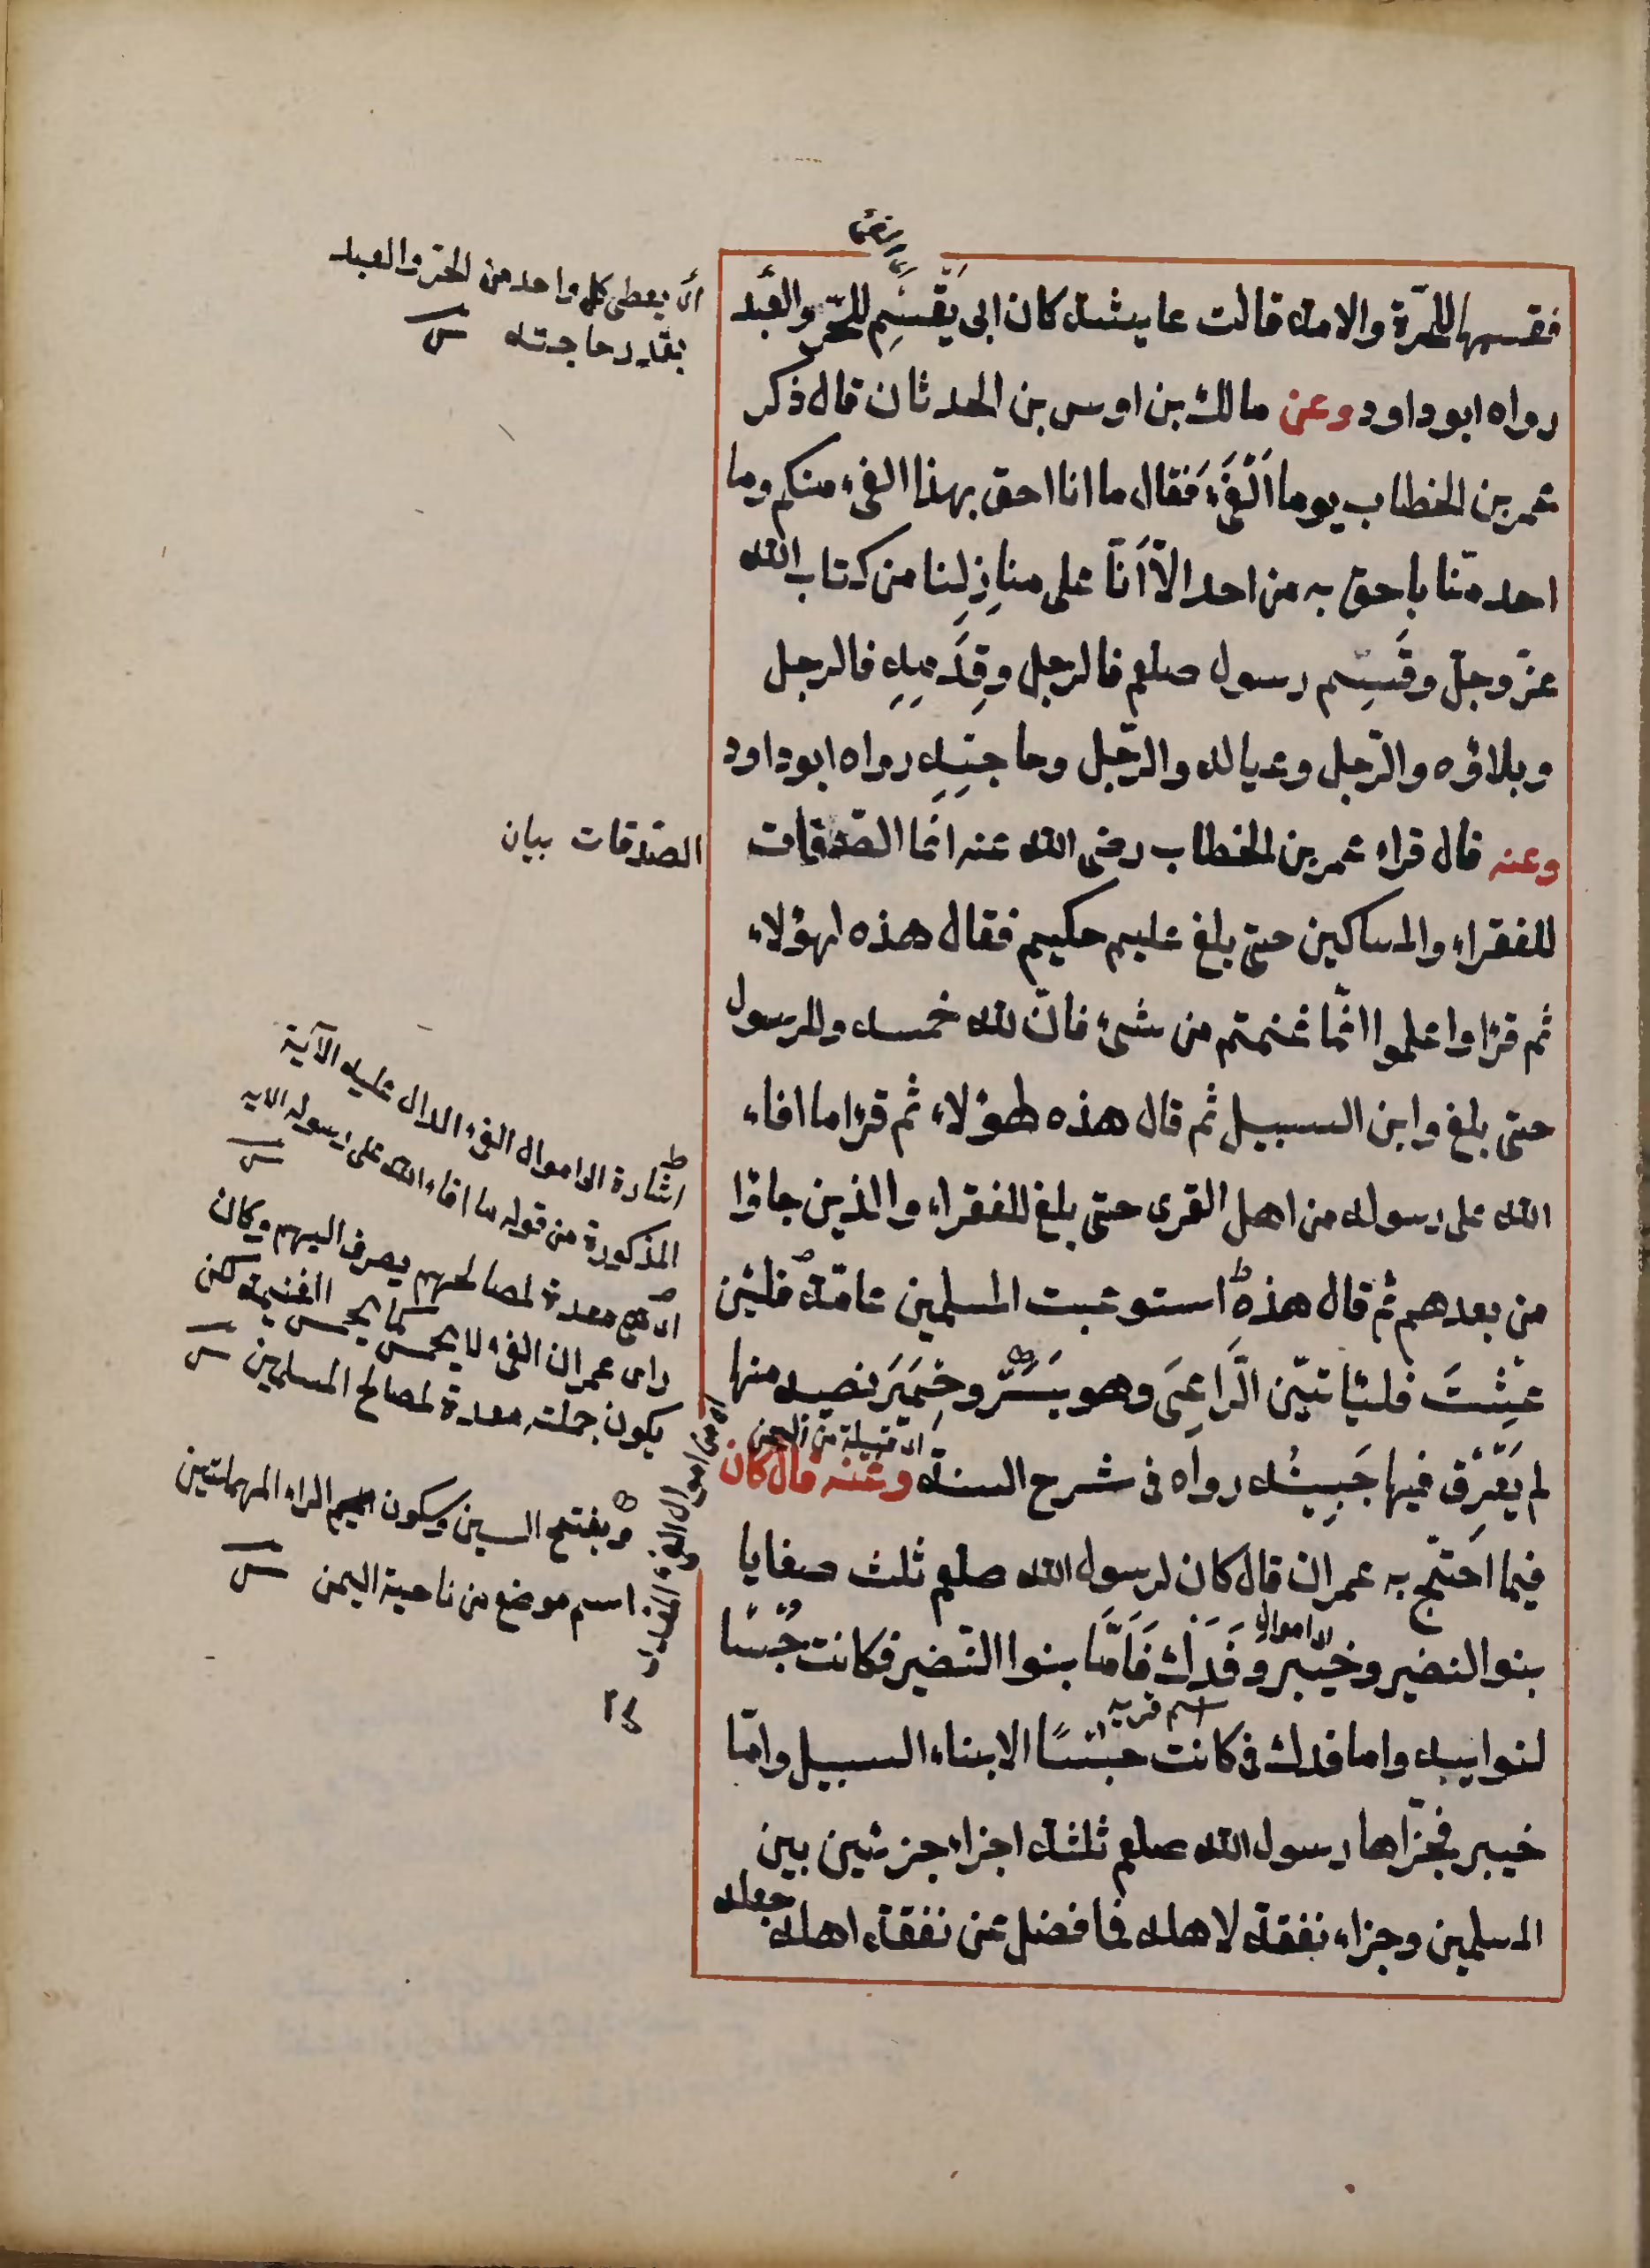 فقسمها للحرّة والامة قالت عايشة كان ابى يَقْسِم للحرّ والعَبد
رواه ابو داود وعن مالك بن اوس بن الحدثان قال ذكر
عمر بن الخطاب يوما اَلْفَىْءَ فَقال ما انا احق بهذا الفىء منكم وما
احد منّا باحق به من احد الّا اَنّا على منازِلِنا من كتاب الله
عزّ وجلّ وقَسِم رسول صلعم فالرجل وقِدَمِهِ فالرجل
وبلاؤه والرّجل وعياله والرّجل وحاجتِهِ رواه ابو داود
وعنه قال قراء عمر بن الخطاب رضى الله عنه انّما الصّدقات
للفقراء والمساكين حتى بلغ عليم حكيم فقال هذه لهؤلاء
ثم قرٔا واعلموا انّما غنمتم من شىء فانّ لله خمسه وللرسول
حتى بلغ وابن السبيل ثم قال هذه لهؤلاء ثم قرٔا ما افاء
الله على رسوله من اهل القرى حتى بلغ للفقراء والذين جاؤا
من بعدهم ثم قال هذه استوعبت المسلمين عامّة فلئن
عِشْتَ فلئا تينّ الرّاعِىَ وهو بِسَرْو حِمْيَرَ نصيبه منها
لم يَعْرَق فيها جَبِينُه رواه فى شرح السنة وعنه قال كان
فيما احتجّ به عمر ان قال كان لرسول الله صلعم ثلث صفايا
بنو النضير وخيبر وفَدَك فَاَمَّا بنوا النّضير فكانت حُبْسًا
لنوايبه واما فدك فكانت حبْسًا الابناء السبيل وامّا
خيبر فجزّاها رسول الله صلعم ثلثة اجزاء جزئين بين
المسلمين وجزاء نفقة لاهله فما فضل عن نفقة اهله جعله
اى يعطى كل واحد من الحرّ والعبد
بقدر حاجته
الصّدقات بيان
اشارة الى اموال الفىء الدال عليه الآية
المذكورة من قوله ما افاء الله على رسوله الايه
اى هى معدة لمصالحهم يصرف اليهم وكان
راى عمر ان الفىء لا يخمس كما يخمس الغنيمة لكن
يكون جملته معدة لمصالح المسلمين
وبفتح السين وسكون الراء المهملتين
اسم موضع من ناحية اليمن
اى قبيلة من اليمن
اى من اموال الفىء
اى اموال
اسم قريه